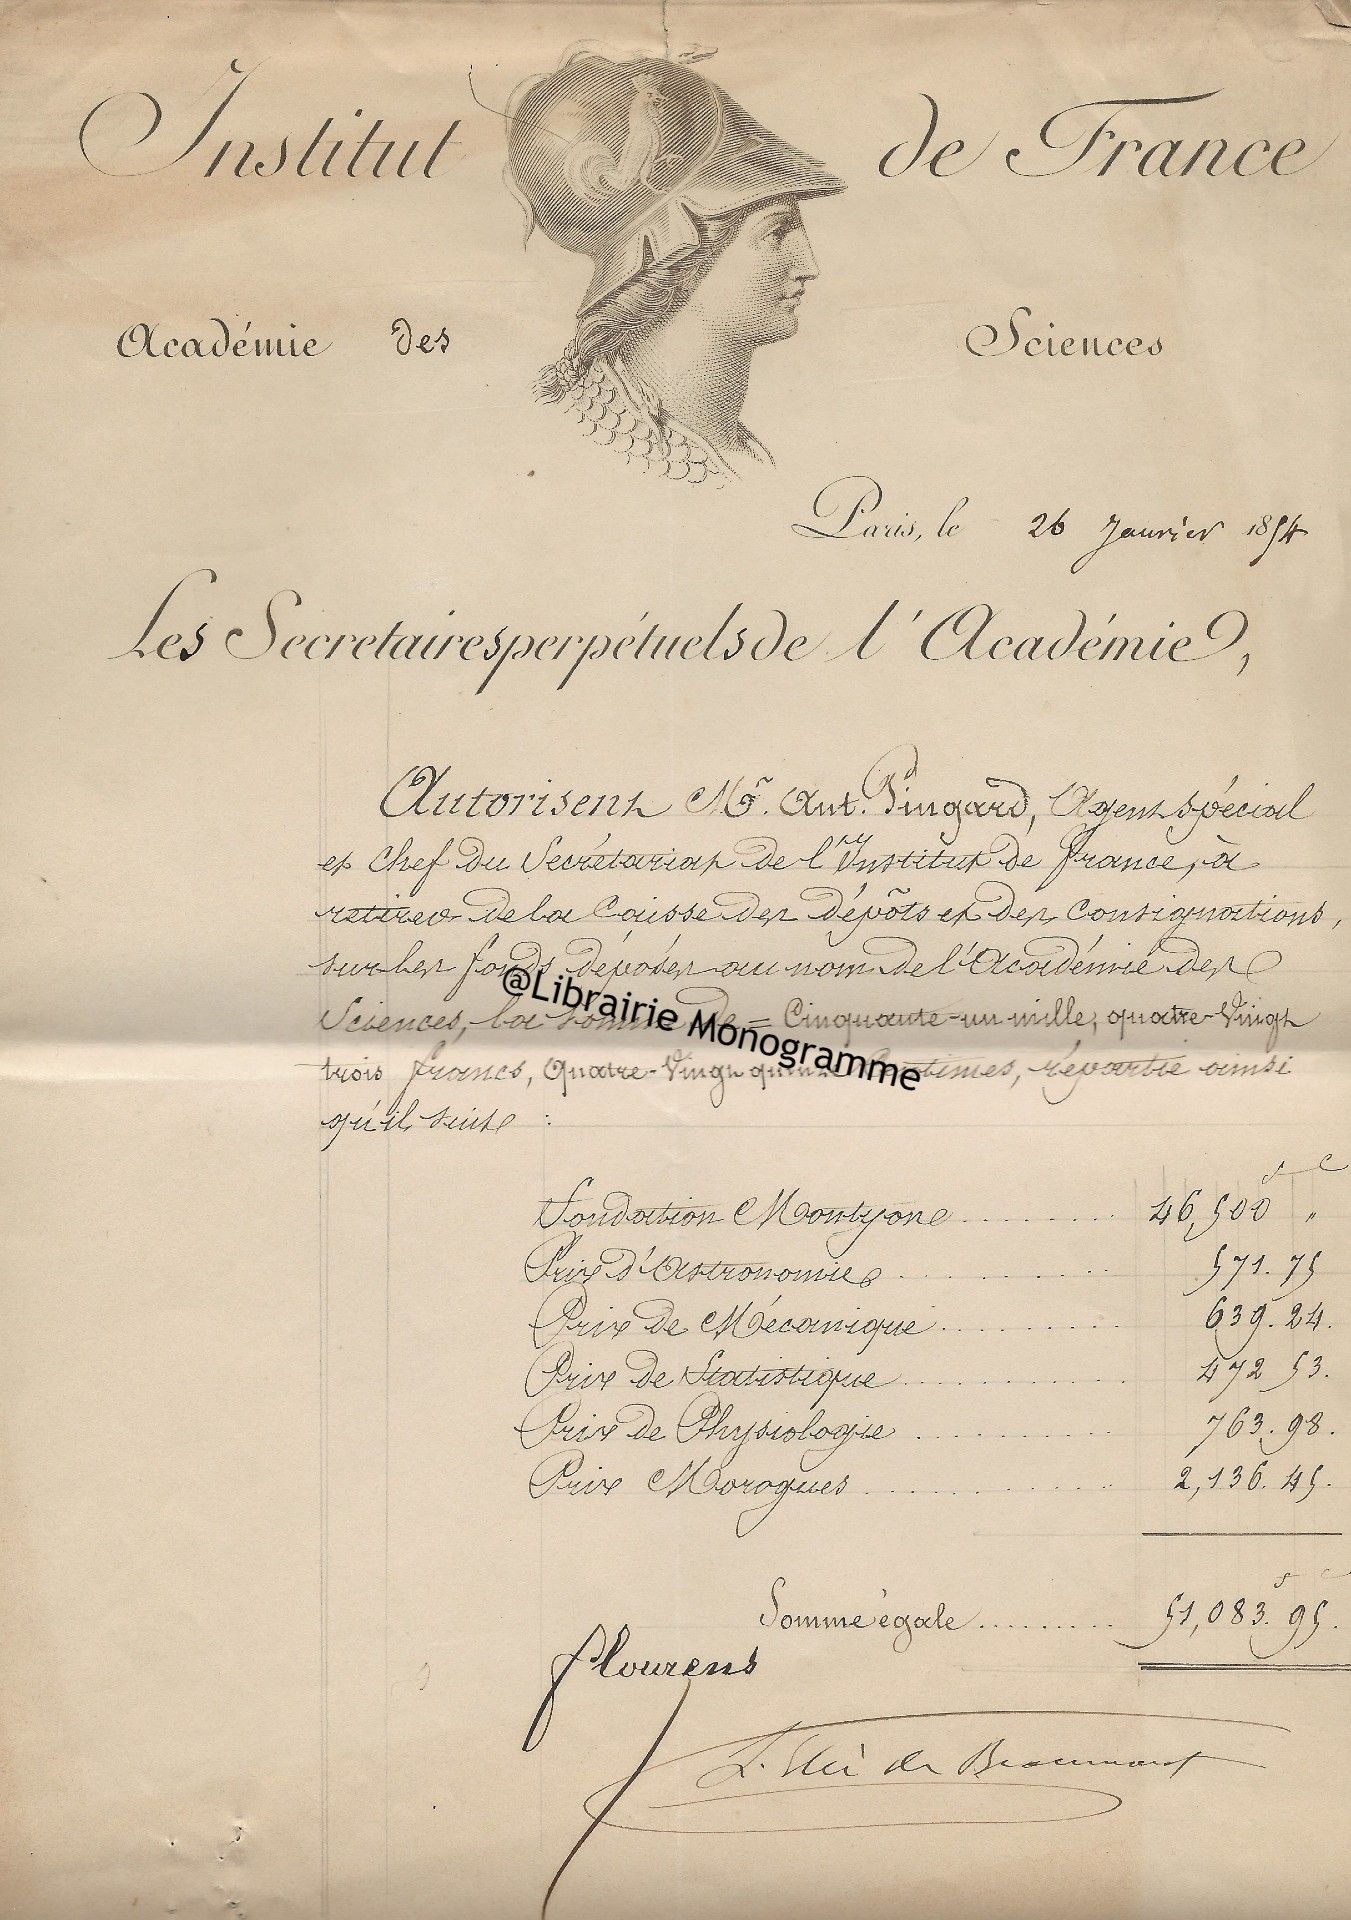 Institut de France
Académie des Sciences
Paris, le 26 Janvier 1854
Les Secretaires perpétuels de l'Académie,
Autorisent Mr. Ant. Pingard, Agent spécial
et chef du Secrétariat de l'Institut de france, à
retirer de la Caisse des dépôts et des Consignations,
sur les fonds déposés au nom de l'Académie des
Sciences, la somme de = Cinquante-un mille, quatre-Vingt
trois francs, Quatre-Vingt quinze Centimes, répartie ainsi
qu'il suit :
@Librairie Monogramme
f c
Fondation Montyon ........ 46,500 "
Prix d'Astronomie ........ 571.75
Prix de Mécanique ........ 639.24.
Prix de Statistique ........ 472 53.
Prix de Physiologie ........ 763.98.
Prix Morogues ........ 2,136.45.
f c
Somme égale ........ 51,083.95.
flourens
L. Elie de Beaumont